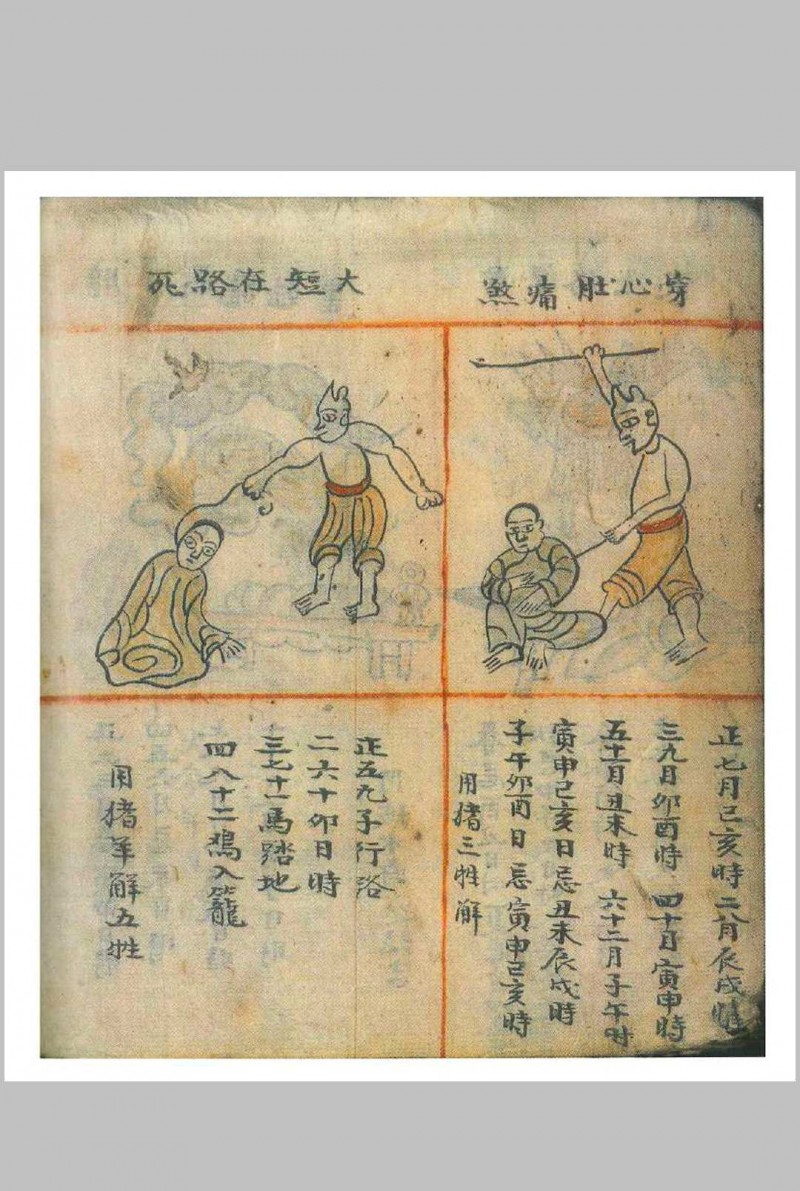 穿心肚痛煞
正七月己亥時二八月辰戌時
三九月卯酉時 四十月寅申時
五十一月丑未時 六十二月子午时
寅申己亥日忌丑未辰戌時
子午卯酉日忌寅申己亥時
用猪三牲解
大短在路死
正五九子行路
二六十卯日時
三七十一馬踏地
四八十二鷄入籠
用猪羊解五牲